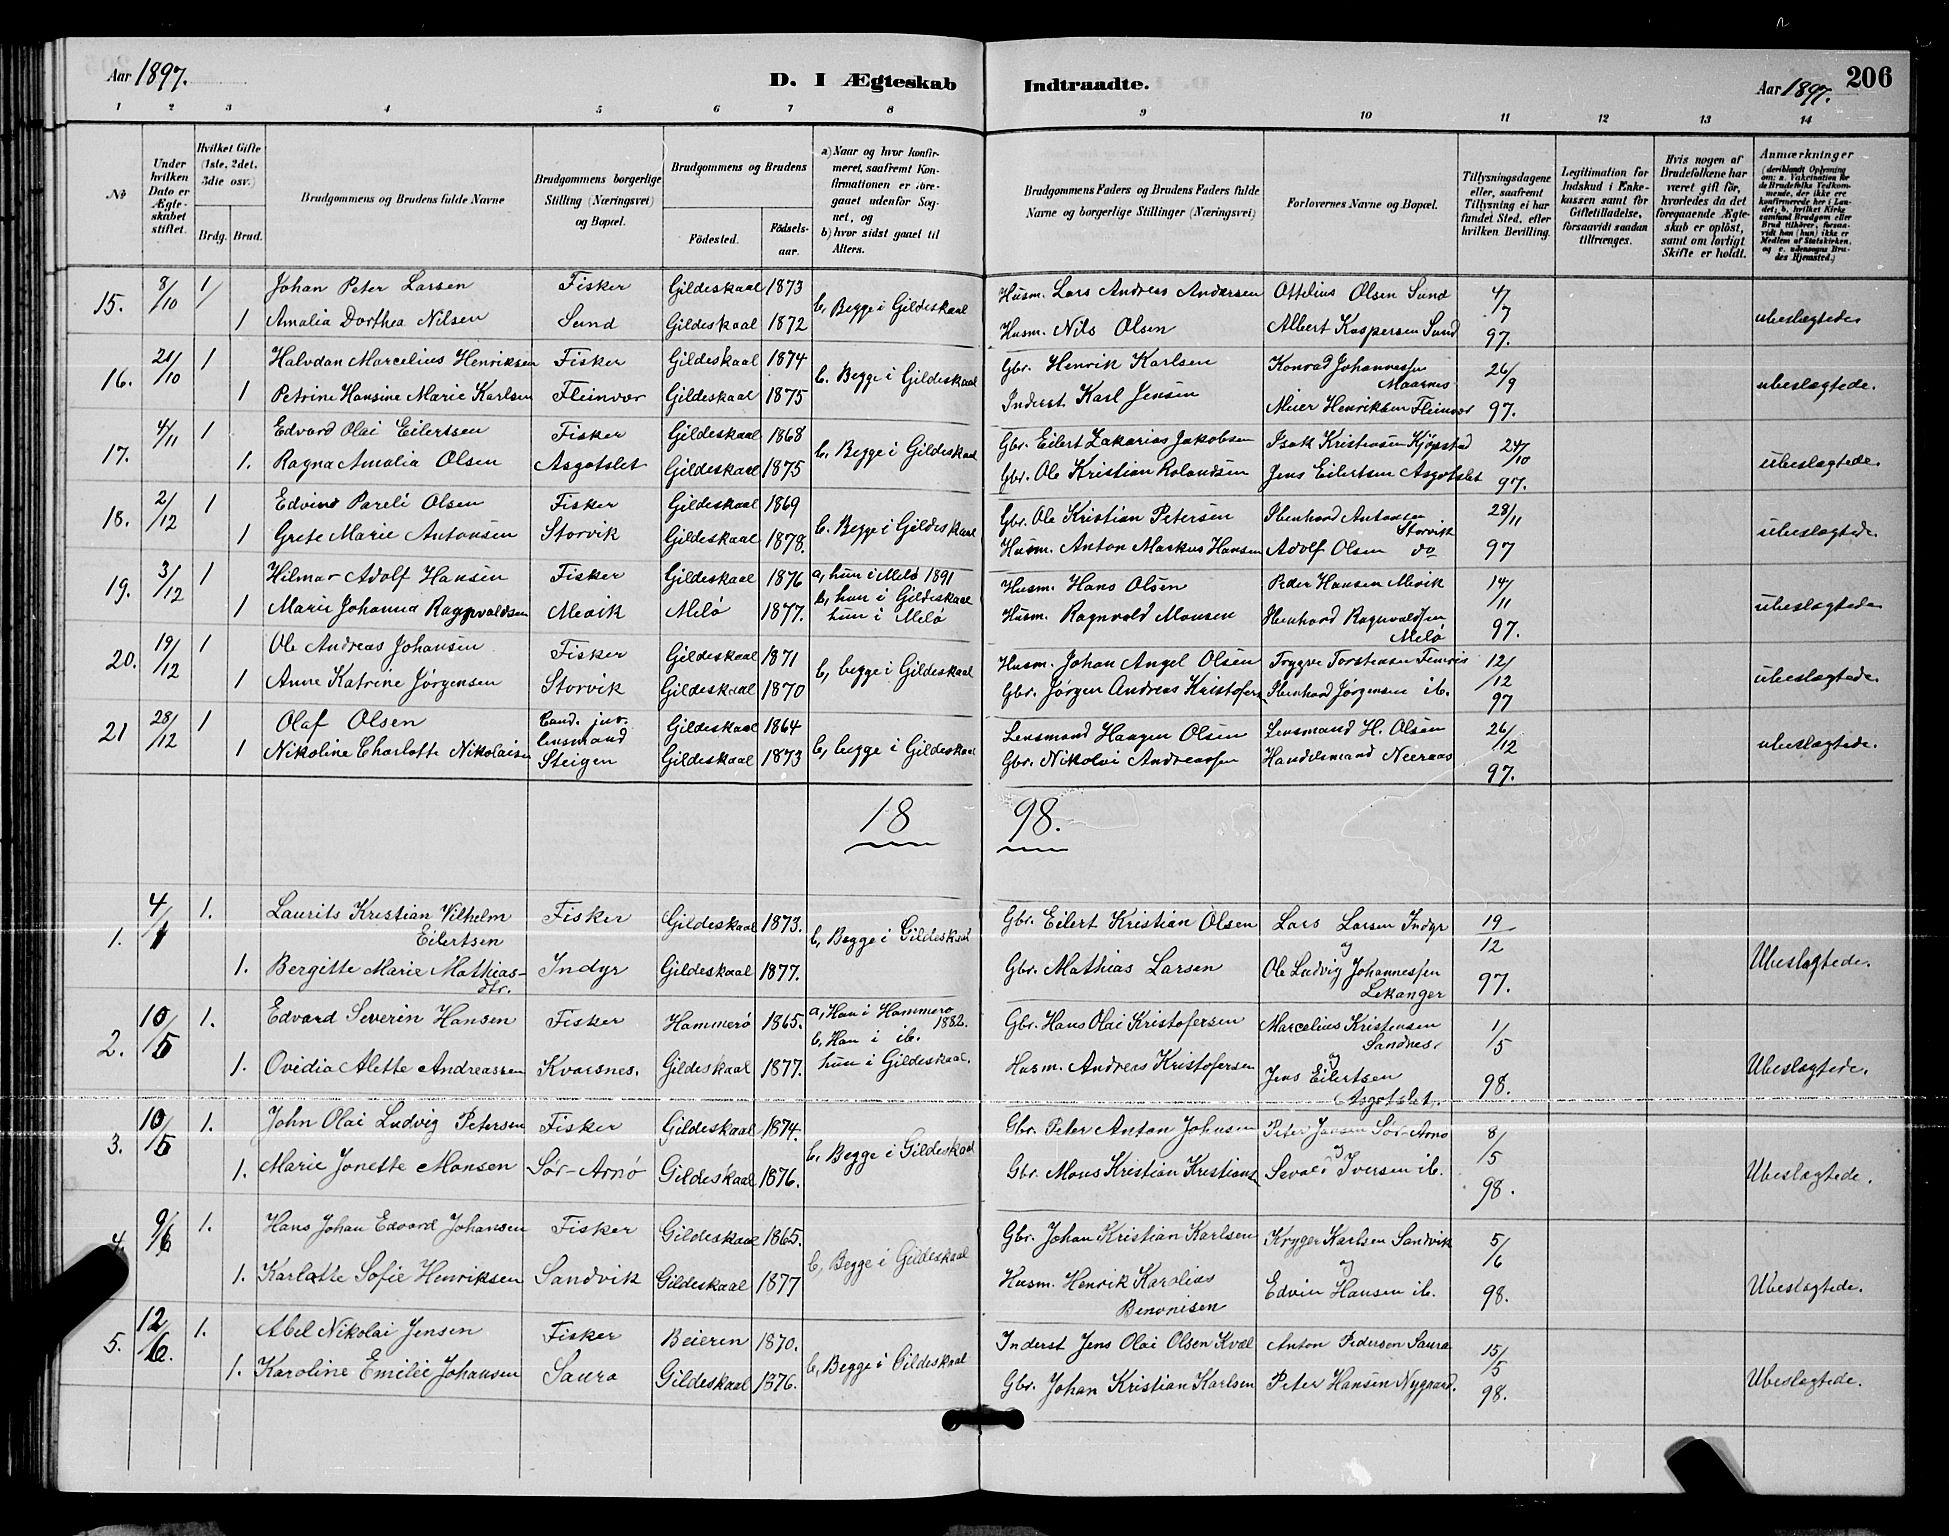 Aar 1897. D. I Ægteskab Indtraadte. Aar 1897. 206
1 2 3 4 5 6 7 8 9 10 11 12 13 14
No
Under hvilken Dato er Ægteskabet stiftet.
Hvilket Gifte (1ste, 2det, 3die osv.)
Brdg. Brud.
Brudgommens og Brudens fulde Navne
Brudgommens borgerlige Stilling (Næringsvei) og Bopæl.
Brudgommens og Brudens
Födested. Födsels-aar.
a) Naar og hvor konfirmeret, saafremt Konfirmationen er foregaaet udenfor Sognet, og
b) hvor sidst gaaet til Alters.
Brudgommens Faders og Brudens Faders fulde Navne og borgerlige Stillinger (Næringsvei)
Forlovernes Navne og Bopæl.
Tillysningsdagene eller, saafremt Tillysning ei har fundet Sted, efter hvilken Bevilling.
Legitimation for Indskud i Enkekassen samt for Giftetilladelse, forsaavidt saadan tiltrænges.
Hvis nogen af Brudefolkene har været gift för, hvorledes da det foregaaende Ægteskab er oplöst, samt om lovligt Skifte er holdt.
Anmærkninger
(deriblandt Oplysning om: a. Vakcination for de Brudefolks Vedkommende, der ikke ere konfirmerede her i Landet; b. hvilket Kirkesamfund Brudgom eller Brud tilhörer, forsaavidt han (hun) ikke er Medlem af Statskirken, og c. udensogns Brudes Hjemsted.)
15. 8/10 1 Johan Peter Larsen Fisker Gildeskaal 1873 b, Begge i Gildeskaal Husm. Lars Andreas Andersen Ottelius Olsen Sund 4/7
1 Amalia Dorthea Nilsen Sund Gildeskaal 1872 Husm. Nils Olsen Albert Kaspersen Sund 97. ubeslægtede
16. 21/10 1 Halvdan Marcelius Henriksen Fisker Gildeskaal 1874 b. Begge i Gildeskaal Gbr. Henrik Karlsen Konrad Johannessen Maarnes 26/9
1 Petrine Hansine Marie Karlsen Fleinvær Gildeskaal 1875 Inderst Karl Jensen Meier Henriksen Fleinvær 97. ubeslægtede.
17. 4/11 1 Edvard Olai Eilertsen Fisker Gildeskaal 1868 b, Begge i Gildeskaal Gbr. Eilert Zakarias Jakobsen Isak Kristensen Kjøpstad 24/10
1. Ragna Amalia Olsen Asgotslet Gildeskaal 1875 Gbr. Ole Kristian Rolandsen Jens Eilertsen Asgotslet 97. ubeslægtede.
18. 2/12 1 Edvind Pareli Olsen Fisker Gildeskaal 1869 b. Begge i Gildeskaal Gbr. Ole Kristian Petersen Ibenhard Antonsen Storvik 28/11
1 Grete Marie Antonsen Storvik Gildeskaal 1878. Husm. Anton Markus Hansen Adolf Olsen do 97 ubeslægtede.
19. 3/12 1 Hilmar Adolf Hansen Fisker Gildeskaal 1876 a, hun i Melö 1891 Husm. Hans Olsen Peder Hansen Mevik 14/11
b, hun i Gildeskaal
1 Marie Johanna Ragnvaldsen Mevik Melö 1877. hun i Melö Husm. Ragnvald Monsen Ibenhard Ragnvaldsen Melö 97. ubeslægtede
20. 19/12 1 Ole Andreas Johansen Fisker Gildeskaal 1871 b, begge i Gildeskaal Husm. Johan Angel Olsen Trygve Torstensen Femris 12/12
1 Anne Katrine Jørgensen Storvik Gildeskaal 1870 Gbr. Jørgen Andreas Kristofers Ibenhard Jørgensen ib. 97 ubeslægtede.
21 28/12 1 Olaf Olsen Cand. jur. Lensmand Gildeskaal 1864 Lensmand Haagen Olsen Lensmand H. Olsen 26/12
1 Nikoline Charlotte Nikolaisen Steigen Gildeskaal 1873 b, begge i Gildeskaal Gbr. Nikolai Andreassen Handelsmand Neeraas 97. ubeslægtede.
18 98.
1. 4/1 1. Laurits Kristian Vilhelm Eilertsen Fisker Gildeskaal 1873. b, Begge i Gildeskaal Gbr. Eilert Kristian Olsen Lars Larsen Indyr 19/12
og
1. Bergitte Marie Mathias-dtr. Indyr Gildeskaal 1877. Gbr. Mathias Larsen Ole Ludvig Johannessen Lekanger 97. Ubeslægtede.
2. 10/5 1. Edvard Severin Hansen Fisker Hammerø 1865. a, Han i Hammerø 1882. Gbr. Hans Olai Kristofersen Marcelius Kristensen Sandnes, 1/5
b. Han i ib. og
1. Ovidia Alette Andreassen Kvarsnes. Gildeskaal 1877. hun i Gildeskaal. Husm. Andreas Kristofersen Jens Eilertsen Asgotslet. 98. Ubeslægtede.
3. 10/5 1. John Olai Ludvig Petersen Fisker Gildeskaal 1874. b, Begge i Gildeskaal Gbr. Peter Anton Johnsen Peter Jansen Sør-Arnø 8/5
og
1. Marie Jonette Monsen Sør-Arnø Gildeskaal 1876. Gbr. Mons Kristian Kristians Sevald Iversen ib. 98. Ubeslægtede.
4. 9/6 1. Hans Johan Edvard Johansen Fisker Gildeskaal 1865. b, Begge i Gildeskaal Gbr. Johan Kristian Karlsen Kryger Karlsen Sandvik 5/6
og
1. Karlotte Sofie Henriksen Sandvik Gildeskaal 1877 Husm. Henrik Karolius Benonisen Edvin Hansen ib. 98. Ubeslægtede.
5. 12/6. 1. Abel Nikolai Jensen Fisker Beieren 1870. b, Begge i Gildeskaal Inderst Jens Olai Olsen Kvæl Anton Pederson Saura 15/5
1. Karoline Emilie Johansen Saura Gildeskaal 1876. Gbr. Johan Kristian Karlsen Peter Hansen Nygaard. 98. Ubeslægtede.